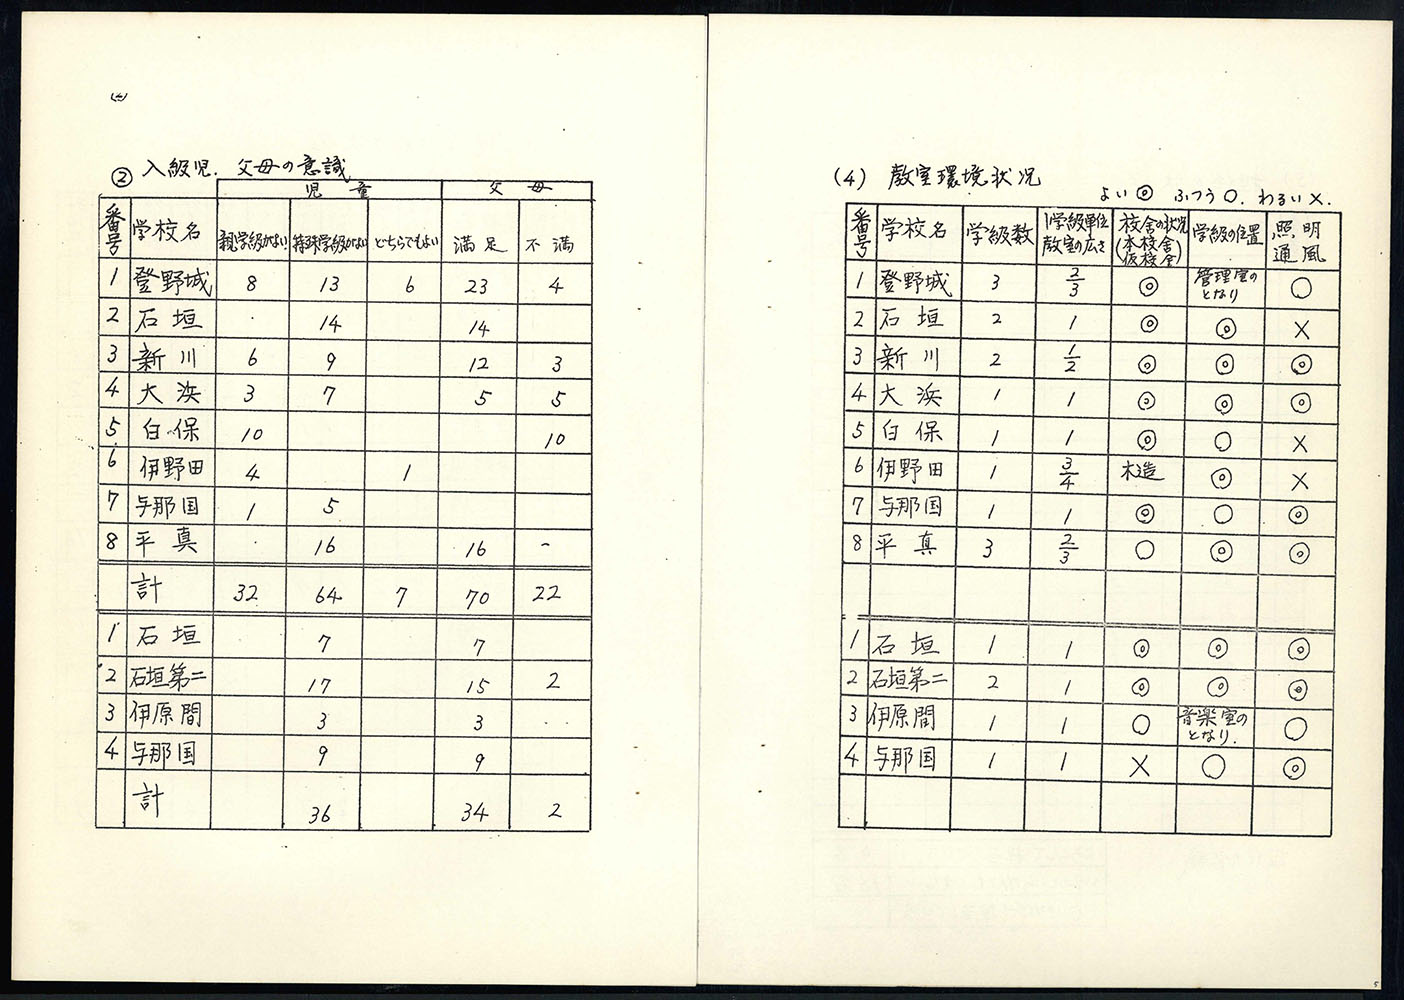 ② 入級児. 父母の意識
児童 父母
番号 学校名 親学級がよい 特殊学級がよい どちらでもよい 満足 不満
1 登野城 8 13 6 23 4
2 石垣 14 14
3 新川 6 9 12 3
4 大浜 3 7 5 5
5 白保 10 10
6 伊野田 4 1
7 与那国 1 5
8 平真 16 16 -
計 32 64 7 70 22
1 石垣 7 7
2 石垣第二 17 15 2
3 伊原間 3 3
4 与那国 9 9
計 36 34 2
(4) 教室環境状況
よい◎ ふつう○. わるい×.
番号 学校名 学級数 1学級単位教室の広さ 校舎の状況(本校舎 仮校舎) 学級の位置 照明通風
1 登野城 3 2/3 ◎ 管理室のとなり ○
2 石垣 2 1 ◎ ◎ ×
3 新川 2 1/2 ◎ ◎ ◎
4 大浜 1 1 ◎ ◎ ◎
5 白保 1 1 ◎ ○ ×
6 伊野田 1 3/4 木造 ◎ ×
7 与那国 1 1 ◎ ○ ◎
8 平真 3 2/3 ○ ◎ ◎
1 石垣 1 1 ◎ ◎ ◎
2 石垣第二 2 1 ◎ ◎ ◎
3 伊原間 1 1 ○ 音楽室のとなり. ○
4 与那国 1 1 × ○ ◎
5